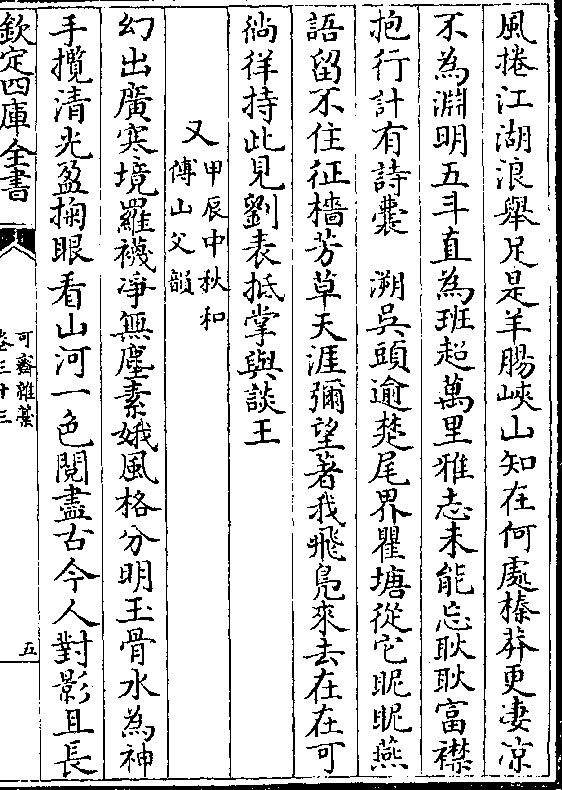 風捲江湖浪舉足是羊腸峽山知在何處榛莽更凄凉
不為淵明五斗直為班超萬里雅志未能忘耿耿富襟
抱行計有詩囊　溯吳頭逾楚尾界瞿塘從它昵昵燕
語留不住征檣芳草天涯彌望著我飛凫來去在在可
徜徉持此見劉表抵掌與談王
又甲辰中秋和
傅山父韻
幻出廣寒境羅襪凈無塵素娥風格分明玉骨水為神
手攬清光盈掬眼看山河一色閱盡古今人對影且長
欽定四庫全書
可齋雜藁
卷三十三
五